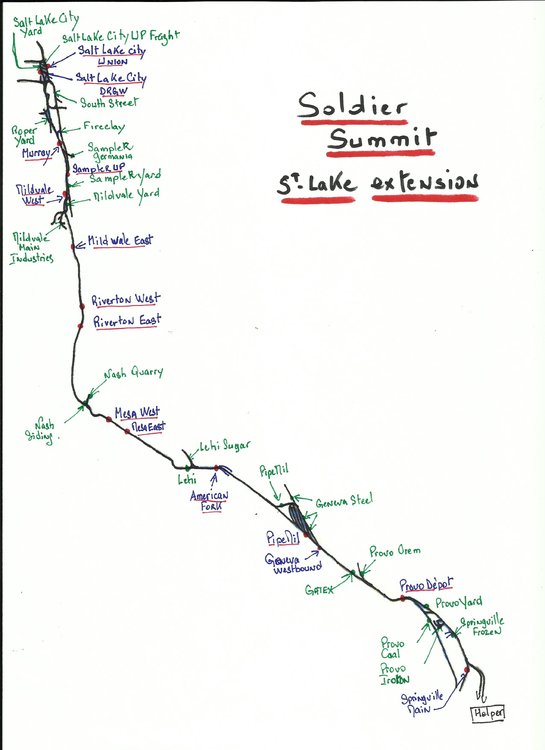 Salt Lake City
Yard
Salt Lake City UP Freight
Salt Lake City
UNION
Salt Lake City
DRGW
South Street
Roper
Yard
Fireclay
Murray
Sampler
Germania
Sampler UP
Sampler Yard
Mildvale
West
Mildvale Yard
Mildvale
Main
Industries
Mildvale East
Riverton West
Riverton East
Nash Quarry
Nash
Siding.
Mesa West
Mesa East
Lehi Sugar
Lehi
American
Fork
Pipe Mil
Geneva Steel
Pipe Mil
Geneva
Westbound
Provo Orem
GATEX
Provo Dépot
Provo Yard
Springville
Frozen
Provo
Coal
Provo
Springville
Main
Helper
Soldier
Summit
ST-Lake extension